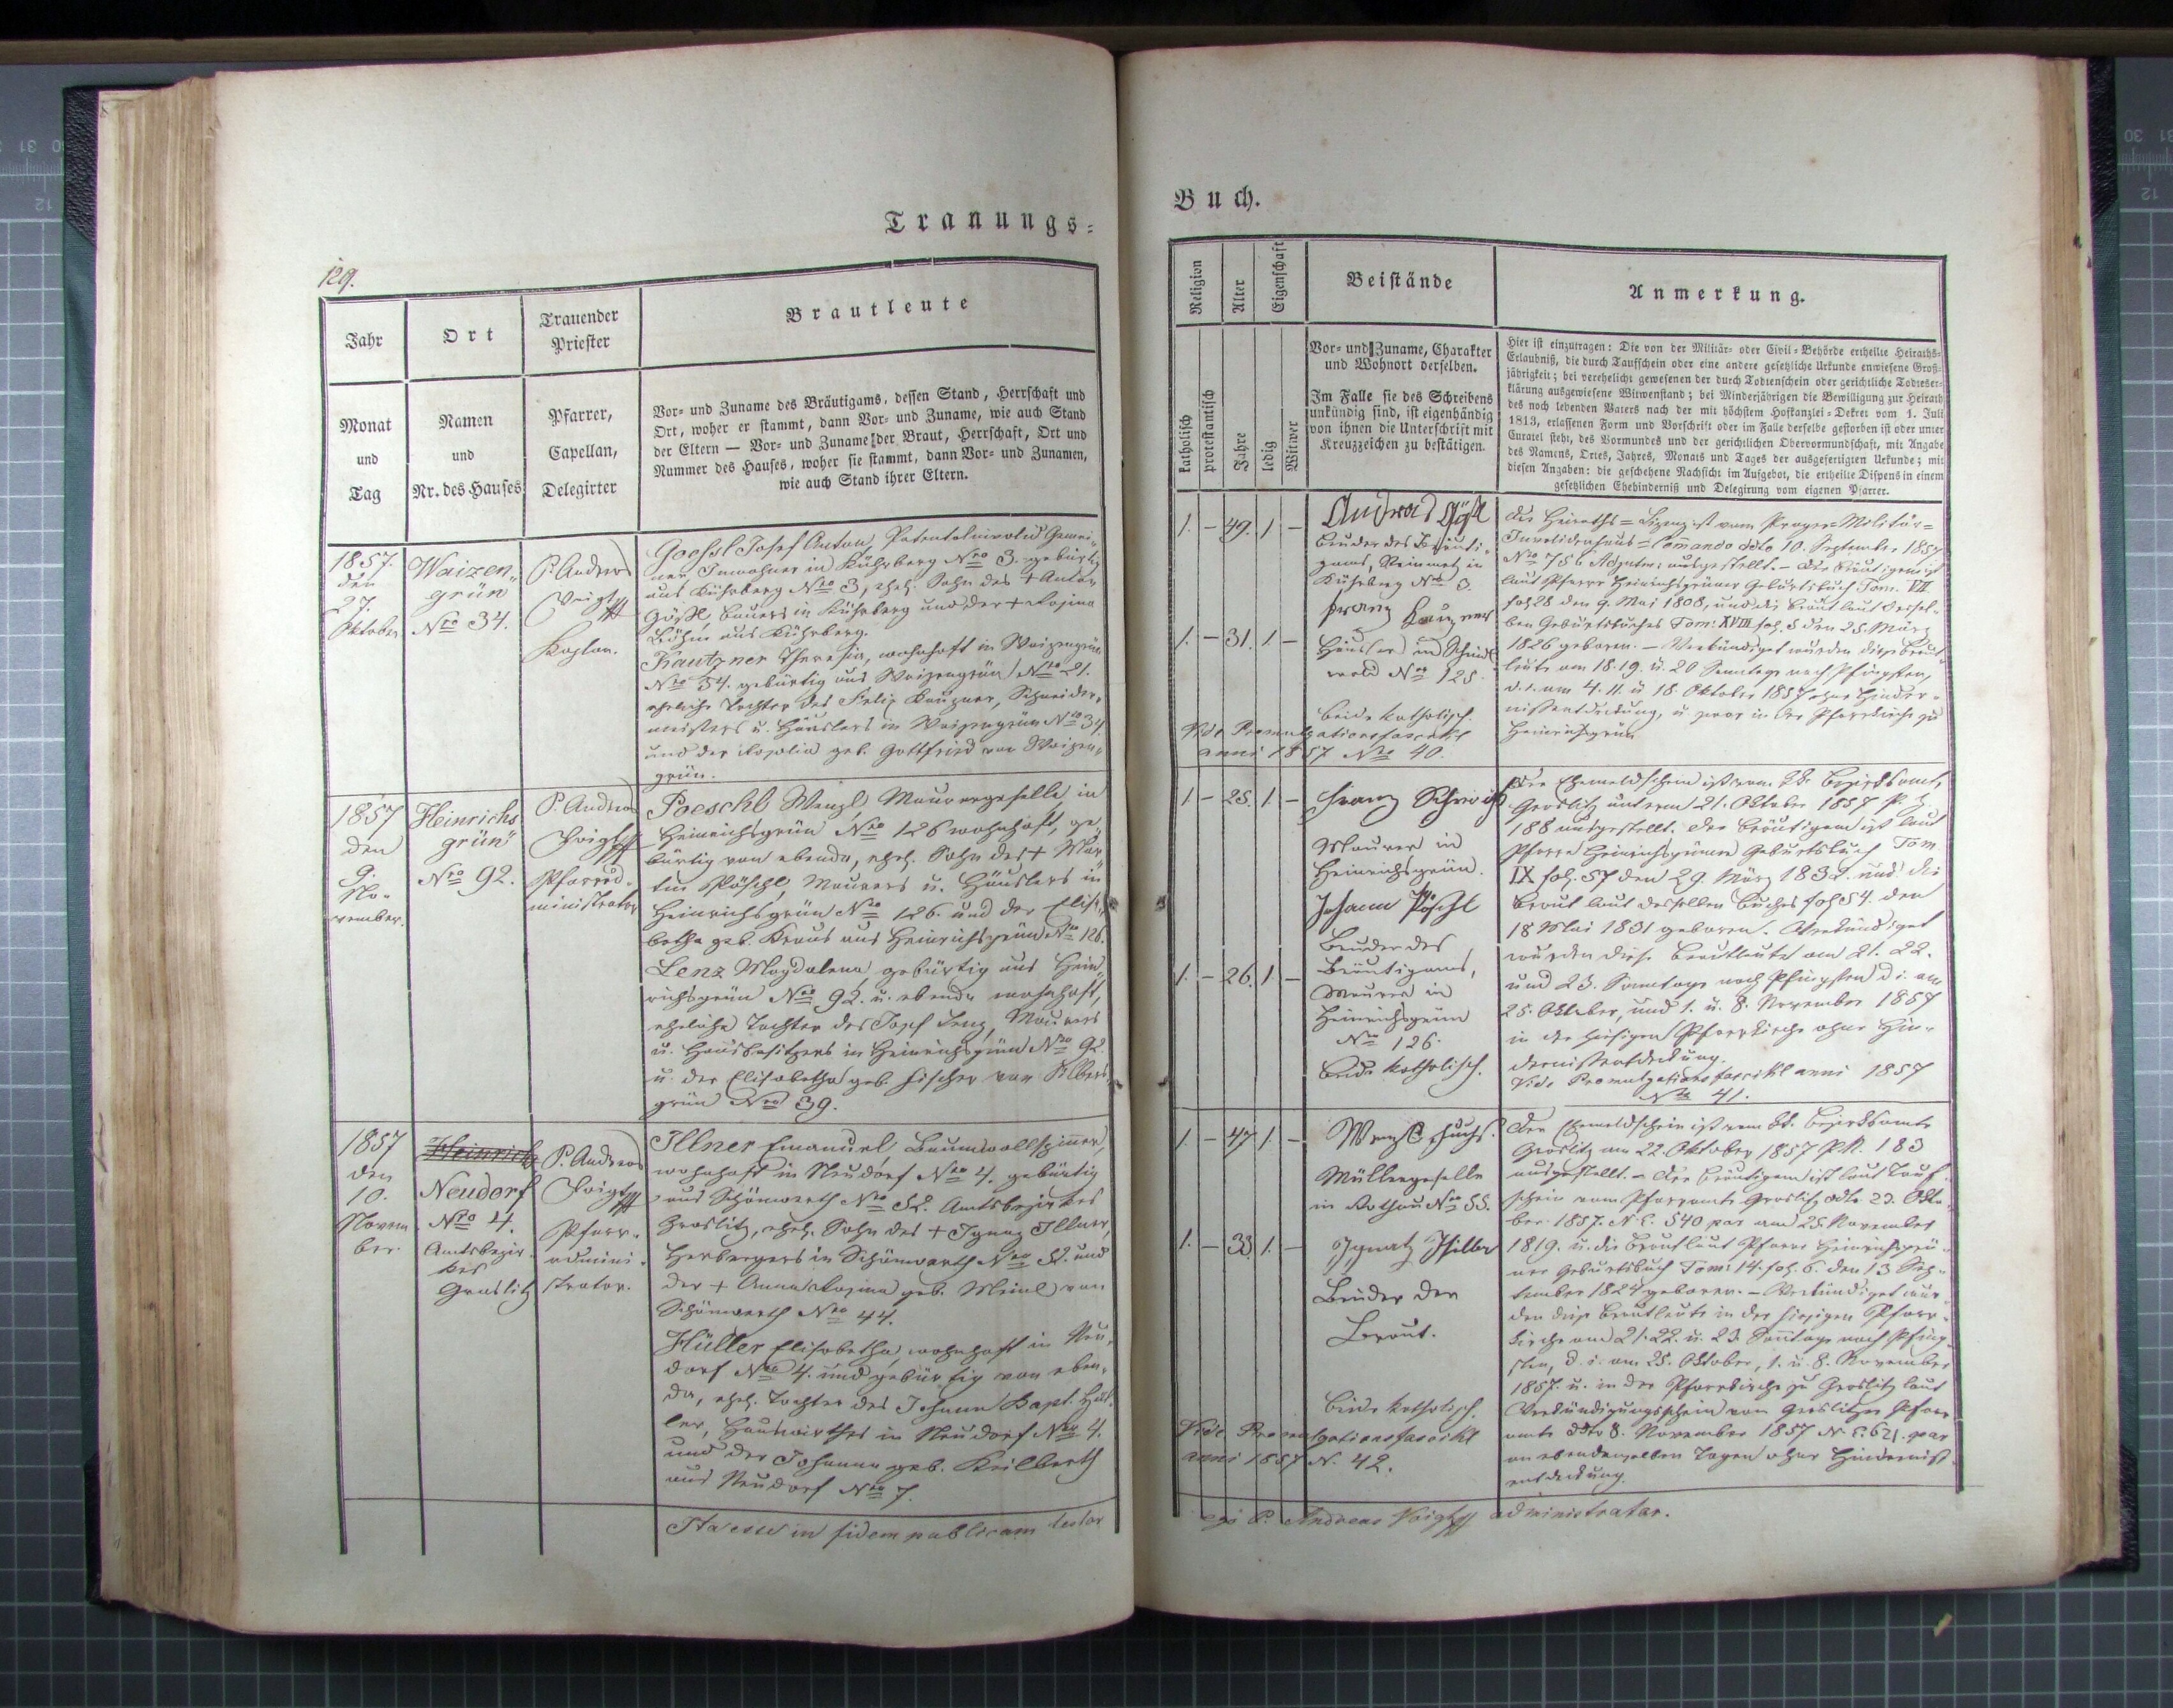 Trauungs-
129.
Jahr
Ort
Trauender
Priester
Brautleute
Monat
und
Tag
Namen
und
Nr. des Hauses
Pfarrer,
Capellan,
Delegirter
Vor- und Zuname des Bräutigams, dessen Stand, Herrschaft und
Ort, woher er stammt, dann Vor- und Zuname, wie auch Stand
der Eltern — Vor- und Zuname der Braut, Herrschaft, Ort und
Nummer des Hauses, woher sie stammt, dann Vor- und Zunamen,
wie auch Stand ihrer Eltern.
1857.
den
27.
Oktober
Waizen-
grün
Nro 34.
P. Andreas
Voigt
Kaplan.
Goeßl Josef Anton, Patentalinvalid Gemei-
ner Inwohner in Kührberg Nro 3. gebürtig
aus Kührberg Nro 3, ehel. Sohn des + Anton
Gößl Bauers in Kührberg und der + Rosina
Böhm aus Kührberg.
Kautzner Theresia, wohnhaft in Waizengrün
Nro 34. gebürtig aus Waizengrün Nro 21.
eheliche Tochter des Felix Kauzner, Schneider-
meisters u. Häuslers in Waizengrün Nro 34.
und der Rosalia geb. Gottfried von Waizen-
grün.
1857
den
9.
No-
vember.
Heinrichs
grün
Nro 92.
P. Andreas
Voigt
Pfarrad-
ministrator
Poeschl Wenzl, Maurergeselle in
Heinrichsgrün Nro 126 wohnhaft, ge-
bürtig von ebenda, ehel. Sohn des + Mar-
tin Pöschl, Maurers u. Häuslers in
Heinrichsgrün Nro 126. und der Elisa-
betha geb. Kraus aus Heinrichsgrün Nro 126.
Lenz Magdalena, gebürtig aus Hein-
richsgrün Nro 92. u. ebenda wohnhaft,
eheliche Tochter des Josef Lenz, Maurers
u. Hausbesitzers in Heinrichsgrün Nro 92.
u. der Elisabetha geb. Fischer von Albers-
grün Nro 39.
1857
den
10.
Novem-
ber.
Heinrichs
Neudorf
Nro 4.
Amtsbezir-
kes
Graslitz
P. Andreas
Voigt
Pfarr-
admini-
strator.
Illner Emanuel Baumwollspinner,
wohnhaft in Neudorf Nro 4. gebürtig
aus Schönwerth Nro 52. Amtsbezirkes
Graslitz, ehel. Sohn des + Ignaz Illner,
Herbergers in Schönwerth Nro 52. und
der + Anna Rosina geb. Meinl von
Schönwerth Nro 44.
Hüller Elisabetha, wohnhaft in Neu-
dorf Nro 4. und gebürtig von eben-
da, ehel. Tochter des Johann Bapt. Hül-
ler, Hauswirthes in Neudorf Nro 4.
und der Johanna geb. Keilberth
aus Neudorf Nro 7.
Ita esse in fidem publicam testor
Buch.
Religion
Alter
Eigenschaft
Beistände
Anmerkung.
katholisch
protestantisch
Jahre
ledig
Witwer
Vor- und Zuname, Charakter
und Wohnort derselben.
Im Falle sie des Schreibens
unkündig sind, ist eigenhändig
von ihnen die Unterschrift mit
Kreuzzeichen zu bestätigen.
Hier ist einzutragen: Die von der Militär- oder Civil-Behörde ertheilte Heiraths-
Erlaubniß, die durch Taufschein oder eine andere gesetzliche Urkunde erwiesene Groß-
jährigkeit; bei verehelicht gewesenen der durch Todtenschein oder gerichtliche Todteser-
klärung ausgewiesene Witwenstand; bei Minderjährigen die Bewilligung zur Heirath
des noch lebenden Vaters nach der mit höchstem Hofkanzlei-Dekret vom 1. Juli
1813, erlassenen Form und Vorschrift oder im Falle derselbe gestorben ist oder unter
Curatel steht, des Vormundes und der gerichtlichen Obervormundschaft, mit Angabe
des Namens, Ortes, Jahres, Monats und Tages der ausgefertigten Urkunde; mit
diesen Angaben: die geschehene Nachsicht im Aufgebot, die ertheilte Dispens in einem
gesetzlichen Ehehinderniß und Delegirung vom eigenen Pfarrer.
1. – 49. 1 –
Andreas Gößl
Bruder des Bräuti-
gams, Steinmetz in
Kührberg Nro 3.
1. – 31. 1 –
Franz Kauzner
Häusler in Schind-
wald Nro 125.
beide katholisch.
Vide Promulgationsfascikl
anni 1857 Nro 40.
Die Heiraths-Lizenz ist vom Prager-Militär-
Invalidenhaus-Commando ddto 10. September 1857
Nro 756 ausgestellt. – Der Bräutigam ist
laut Pfarre Heinrichsgrüner Geburtsbuch Tom. VII
fol 28 den 9. Mai 1808, und die Braut laut dessel-
ben Geburtsbuches Tom: XVIII fol. 5 den 25. März
1826 geboren. – Verkündiget wurden diese Braut-
leute am 18. 19. u. 20 Sonntage nach Pfingsten,
d. i. am 4. 11. u. 18. Oktober 1857 ohne Hinder-
nißentdeckung, u. zwar in der Pfarrkirche zu
Heinrichsgrün
1 – 25. 1. –
Franz
Maurer in
Heinrichsgrün.
1. – 26. 1 –
Johann Pöschl
Bruder des
Bräutigams,
Maurer in
Heinrichsgrün
Nro 126.
beide katholisch.
Der Ehemeldschein ist vom k.k. Bezirksamte
Graslitz unterm 21. Oktober 1857
188 ausgestellt. Der Bräutigam ist laut
Pfarre Heinrichsgrüner Geburtsbuch Tom.
IX fol. 57 den 29. März 1832. und die
Braut laut desselben Buches fol 54. den
18 Mai 1831 geboren. Verkündiget
wurden diese Brautleute am 21. 22.
und 23. Sonntage nach Pfingsten d. i. am
25. Oktober, und 1. u. 8. November 1857
in der hiesigen Pfarrkirche ohne Hin-
dernißentdeckung.
Vide Promulgationsfascikl anni 1857
Nro 41.
1. – 47 1. –
Wenzl Fuchs.
Müllergeselle
in Rothau Nro 55.
1. – 33. 1. –
Ignatz Hiller
Bruder der
Braut.
beide katholisch.
Vide Promulgationsfascikl
anni 1857 N. 42.
Der Ehemeldschein ist vom k.k. Bezirksamte
Graslitz am 22. Oktober 1857 183
ausgestellt. – Der Bräutigam ist laut Tauf-
schein vom Pfarramte Graslitz ddto 23. Okto-
ber 1857. N. E. 540 par am 25. November
1819. u. die Braut laut Pfarre Heinrichsgrü-
ner Geburtsbuch Tom: 14. fol. 6. den 13 Sep-
tember 1824 geboren. – Verkündiget wur-
den diese Brautleute in der hiesigen Pfarr-
kirche am 21. 22. u. 23 Sonntage nach Pfing-
sten, d. i. am 25. Oktober, 1. u. 8. November
1857. u. in der Pfarrkirche zu Graslitz laut
Verkündigungsschein vom Graslitzer Pfarr-
amte ddto 8. November 1857 N. E. 621. par
an ebendenselben Tagen ohne Hinderniß-
entdeckung.
ego P. Andreas Voigt administrator.